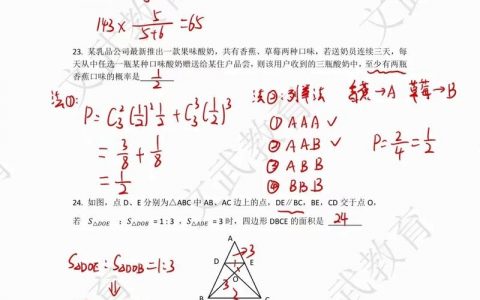 143 × 5/(5+6) = 65
23. 某乳品公司最新推出一款果味酸奶，共有香蕉、草莓两种口味，若送奶员连续三天，每
天从中任选一瓶某种口味酸奶赠送给某住户品尝，则该用户收到的三瓶酸奶中，至少有两瓶
香蕉口味的概率是 1/2
法①: P = C₃²(1/2)²·1/2 + C₃³(1/2)³
= 3/8 + 1/8
= 1/2
法②: 列举法 香蕉→A 草莓→B
① A A A ✓
② A A B ✓
③ A B B
④ B B B
P = 2/4 = 1/2
24. 如图，点 D、E 分别为△ABC 中 AB、AC 边上的点，DE∥BC，BE、CD 交于点 O，
若 S△DOE : S△DOB = 1 : 3 ，S△ADE = 3 时，四边形 DBCE 的面积是 24
S△DOE : S△DOB = 1:3
⇓
A
3
D 1 E
O
3
B C
文武教育
文武教育